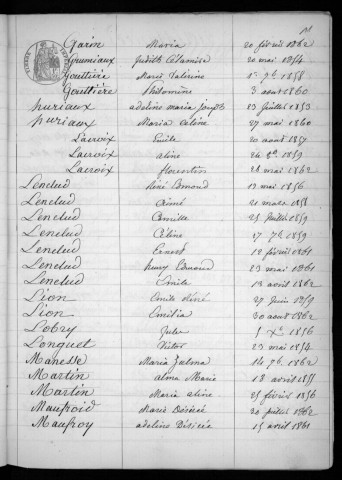 Garin Maria 20 février 1862
Gumeaux Judith Célanise 20 mai 1854
Gouttière Marie Valérine 1er 7bre 1858
Gouttière Philomène 3 aout 1860
huriaux adeline maria Joseph 23 juillet 1853
huriaux Maria Céline 27 mai 1860
Lacroix Emile 20 aout 1857
Lacroix aline 24 8bre 1859
Lacroix florentin 28 mai 1862
Lenclud René Edmond 17 mai 1856
Lenclud Aimé 21 mars 1858
Lenclud Camille 25 juillet 1859
Lenclud Céline 17 7bre 1859
Lenclud Ernest 12 février 1861
Lenclud henry Edmond 23 mai 1861
Lenclud Emile 13 avril 1862
Lion Emile Réné 27 juin 1859
Lion Emilia 30 aout 1862
Lobry Jules 5 Xbre 1856
Longuet Victor 23 mai 1854
Manesse Maria Zulma 14 7bre 1862
Martin alma Marie 18 avril 1855
Martin Maria aline 25 février 1856
Maufroid Marie Désirée 20 juillet 1862
Maufroy adeline Désirée 15 avril 1861